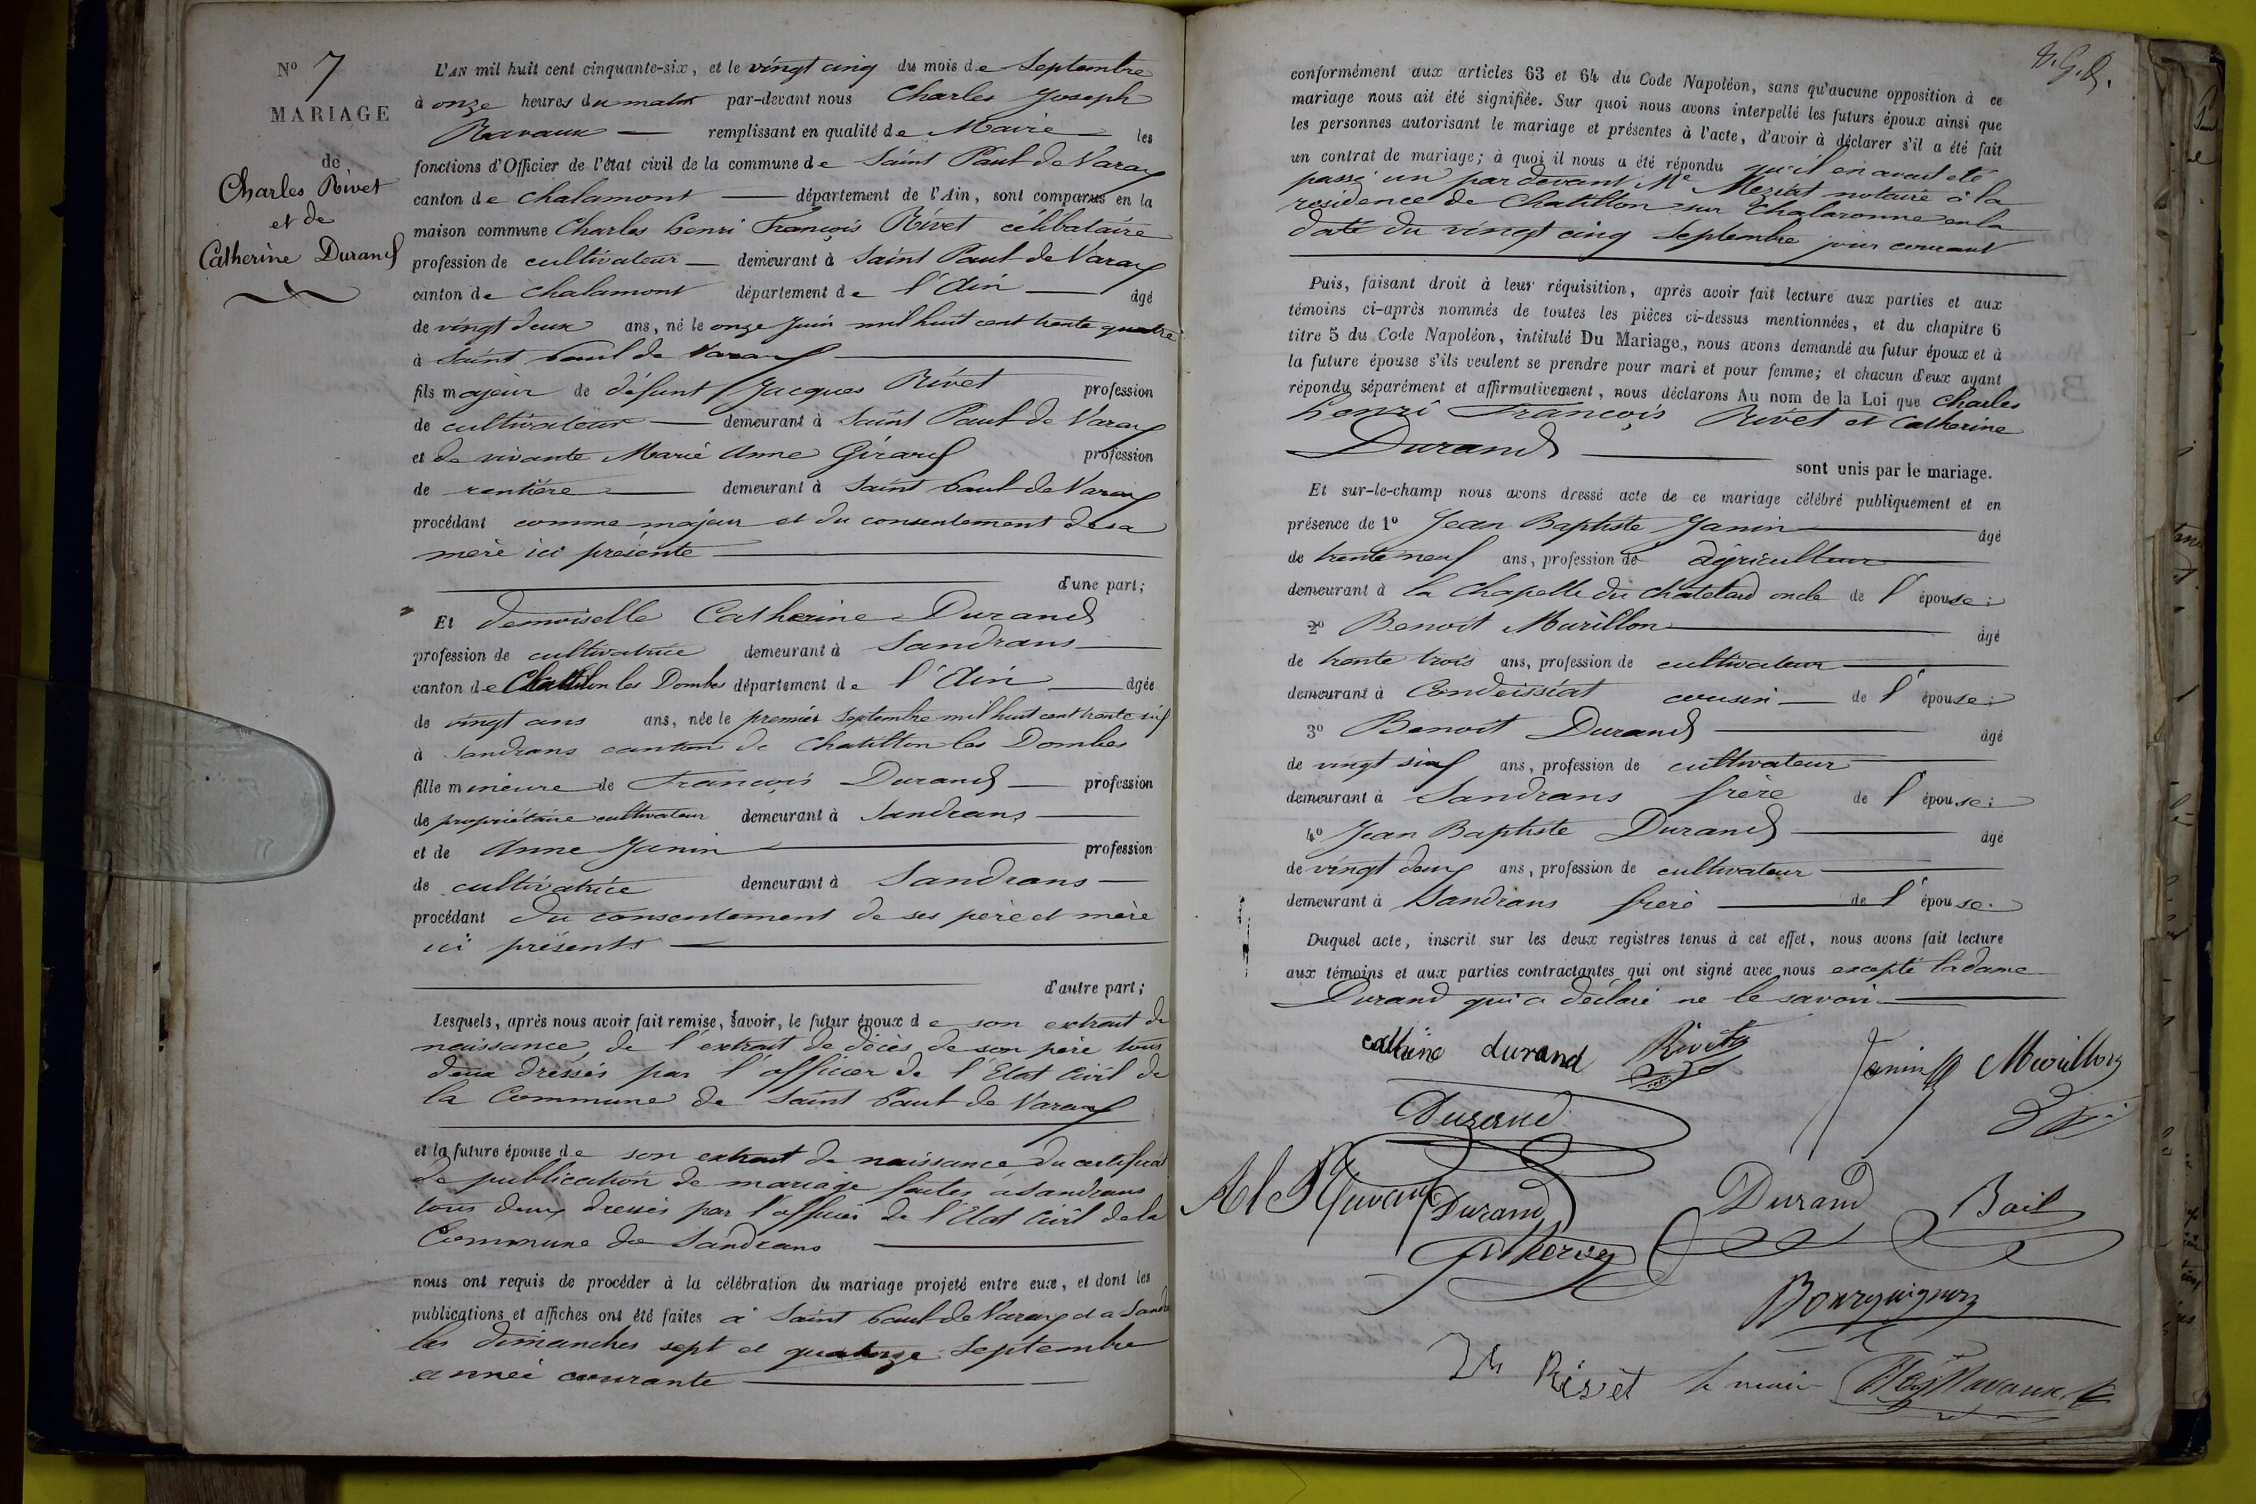 N° 7
MARIAGE
de
Charles Rivet
et de
Catherine Durand
L'AN mil huit cent cinquante-six, et le vingt cinq du mois de Septembre
à onze heures du matin par-devant nous Charles Joseph
Ravaux remplissant en qualité de Maire les
fonctions d'Officier de l'état civil de la commune de Saint Paul de Varax
canton de Chalamont département de l'Ain, sont comparus en la
maison commune Charles henri François Rivet célibataire
profession de cultivateur demeurant à Saint Paul de Varax
canton de Chalamont département de l'Ain âgé
de vingt deux ans, né le onze Juin mil huit cent trente quatre
à Saint Paul de Varax
fils majeur de défunt Jacques Rivet profession
de cultivateur demeurant à Saint Paul de Varax
et de vivante Marie Anne Girard profession
de rentière demeurant à Saint Paul de Varax
procédant comme majeur et du consentement de sa
mère ici présente
d'une part;
Et demoiselle Catherine Durand
profession de cultivatrice demeurant à Sandrans
canton de Chatillon les Dombes département de l'Ain âgée
de vingt ans ans, née le premier Septembre mil huit cent trente six
à Sandrans canton de Chatillon les Dombes
fille mineure de François Durand profession
de propriétaire cultivateur demeurant à Sandrans
et de Anne Janin profession
de cultivatrice demeurant à Sandrans
procédant du consentement de ses père et mère
ici présents
d'autre part;
Lesquels, après nous avoir fait remise, savoir, le futur époux de son extrait de
naissance de l'extrait de décès de son père tous
deux dressés par l'officier de l'Etat Civil de
la Commune de Saint Paul de Varax
et la future épouse de son extrait de naissance du certificat
de publication de mariage faites à Sandrans
tous deux dressés par l'officier de l'Etat Civil de la
Commune de Sandrans
nous ont requis de procéder à la célébration du mariage projeté entre eux, et dont les
publications et affiches ont été faites à Saint Paul de Varax et a Sandr
les dimanches sept et quatorze Septembre
année courante
conformément aux articles 63 et 64 du Code Napoléon, sans qu'aucune opposition à ce
mariage nous ait été signifiée. Sur quoi nous avons interpellé les futurs époux ainsi que
les personnes autorisant le mariage et présentes à l'acte, d'avoir à déclarer s'il a été fait
un contrat de mariage; à quoi il nous a été répondu qu'il en avait été
passé un pardevant Me Meziat notaire à la
residence de Chatillon sur Chalaronne en la
date du vingt cinq Septembre jour courant
Puis, faisant droit à leur réquisition, après avoir fait lecture aux parties et aux
témoins ci-après nommés de toutes les pièces ci-dessus mentionnées, et du chapitre 6
titre 5 du Code Napoléon, intitulé Du Mariage, nous avons demandé au futur époux et à
la future épouse s'ils veulent se prendre pour mari et pour femme; et chacun d'eux ayant
répondu séparément et affirmativement, nous déclarons Au nom de la Loi que Charles
henri François Rivet et Catherine
Durand
sont unis par le mariage.
Et sur-le-champ nous avons dressé acte de ce mariage célébré publiquement et en
présence de 1° Jean Baptiste Janin âgé
de trente neuf ans, profession de agriculteur
demeurant à la Chapelle du Chatelard oncle de l'épouse;
2° Benoit Murillon âgé
de trente trois ans, profession de cultivateur
demeurant à Condeissiat cousin de l'épouse;
3° Benoit Durand âgé
de vingt six ans, profession de cultivateur
demeurant à Sandrans frère de l'épouse;
4° Jean Baptiste Durand âgé
de vingt deux ans, profession de cultivateur
demeurant à Sandrans frère de l'épouse.
Duquel acte, inscrit sur les deux registres tenus à cet effet, nous avons fait lecture
aux témoins et aux parties contractantes qui ont signé avec nous excepté la dame
Durand qui a déclaré ne le savoir
cathrine durand Rivet Janin Murillon
Durand
Durand Durand Bail
Bourguignon
Rivet le maire Ravaux